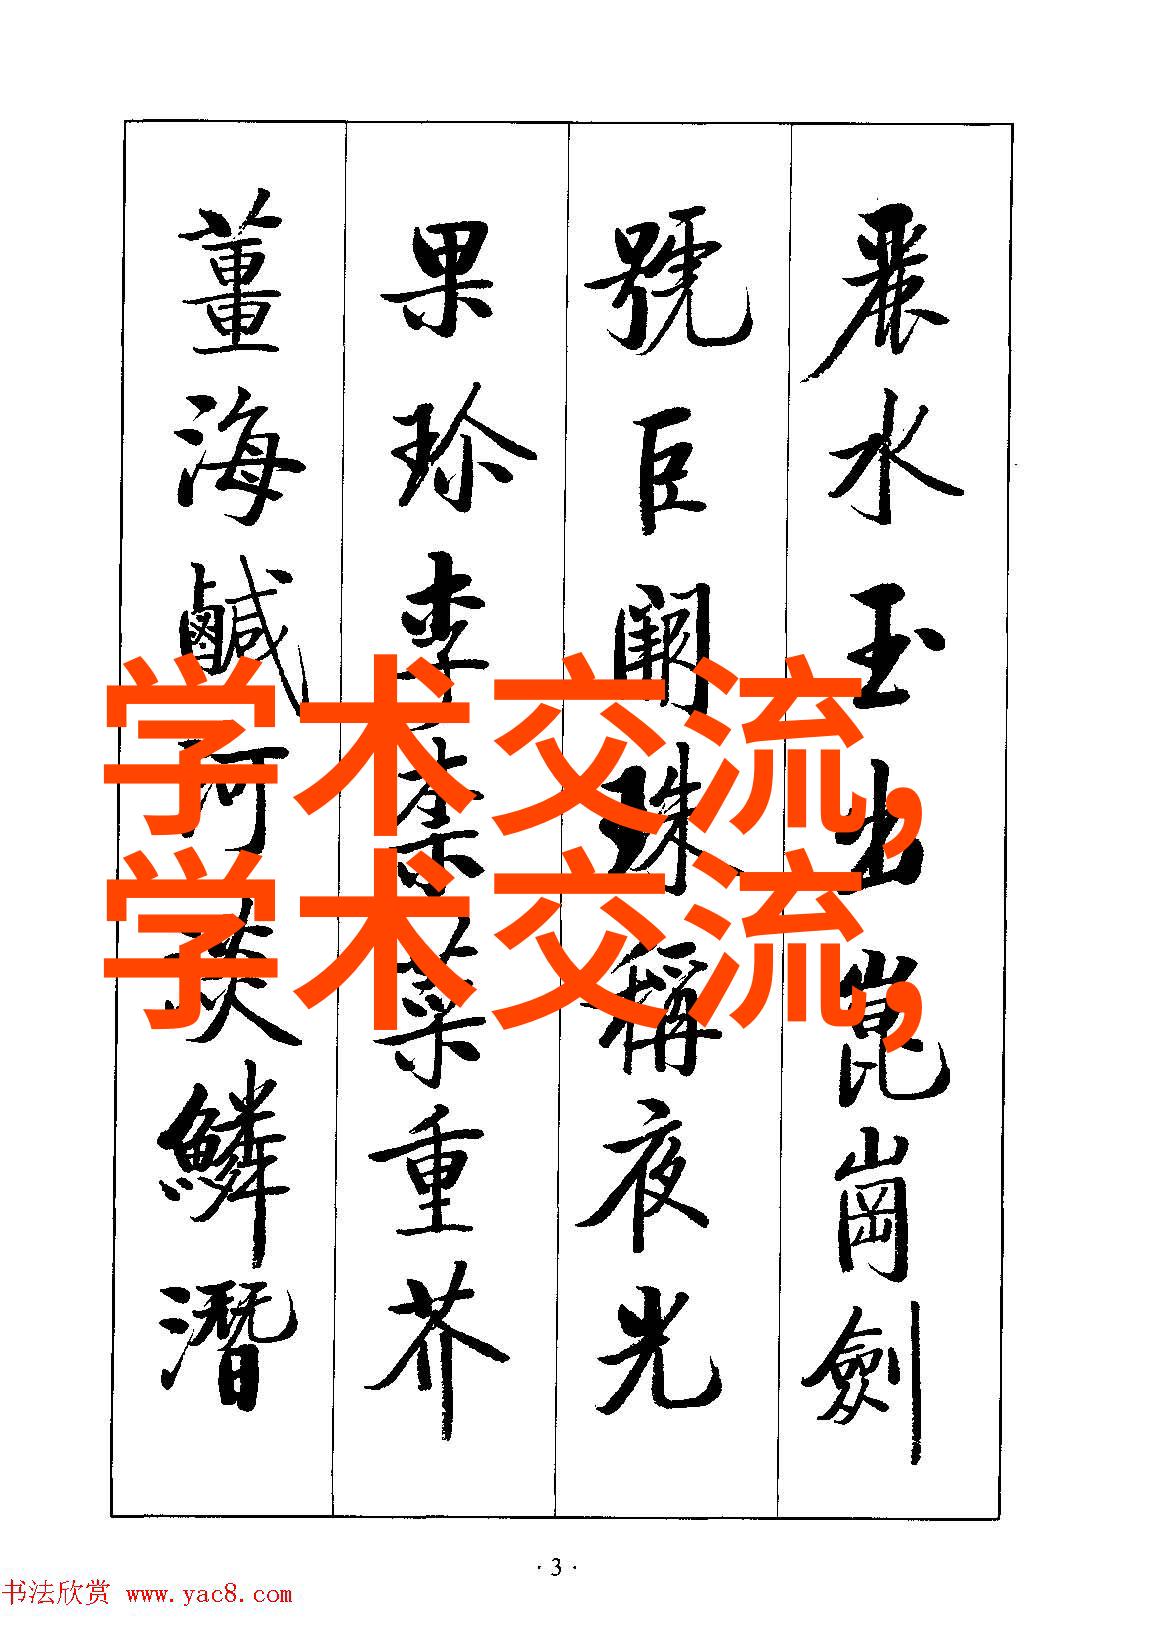 麗水玉出崑崗劍
號巨闕珠稱夜光
果珍李柰菜重芥
薑海鹹河淡鱗潛
学术交流,
学术交流,
·3·
书法欣赏 www.yac8.com